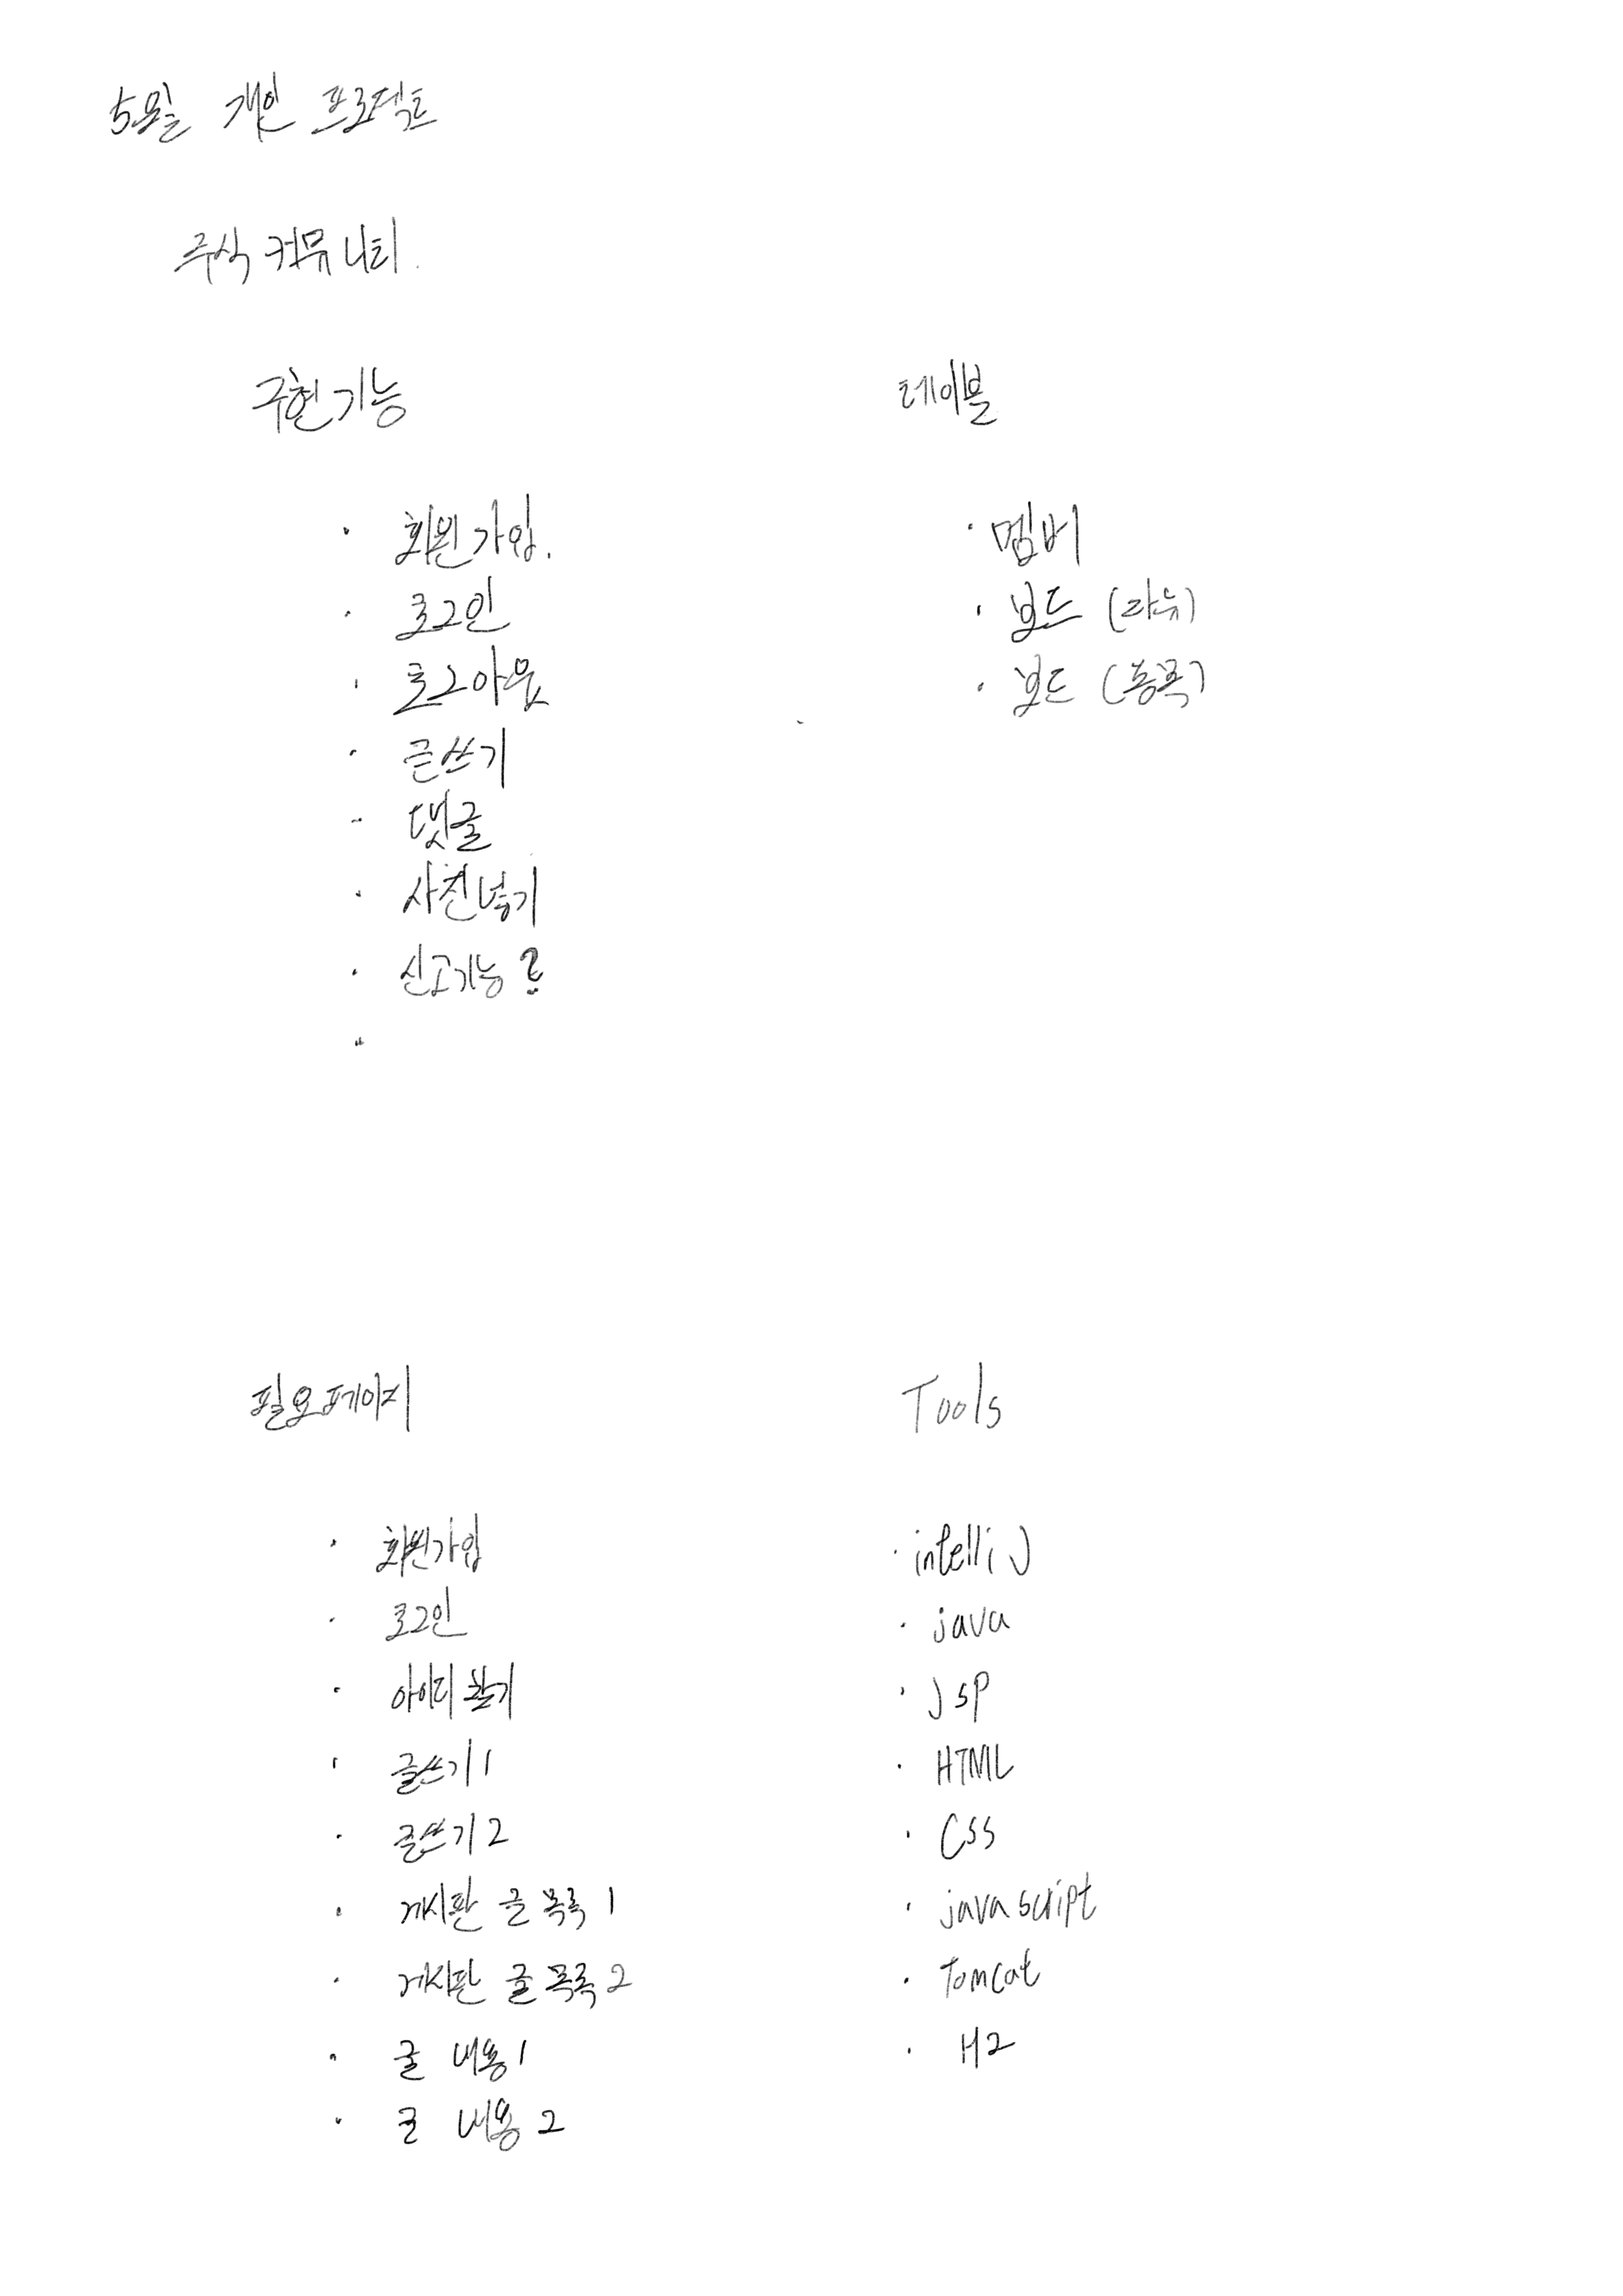 5월 개인 프로젝트
주식 커뮤니티.
구현기능
· 회원가입.
· 로그인
· 로그아웃
· 글쓰기
· 댓글
· 사진넣기
· 신고기능?
·
테이블
· 멤버
· 보드 (자유)
· 보드 (종목)
필요페이지
· 회원가입
· 로그인
· 아이디 찾기
· 글쓰기 1
· 글쓰기 2
· 게시판 글 목록 1
· 게시판 글 목록 2
· 글 내용 1
· 글 내용 2
Tools
· intelli J
· java
· jsp
· HTML
· CSS
· javascript
· Tomcat
· H2